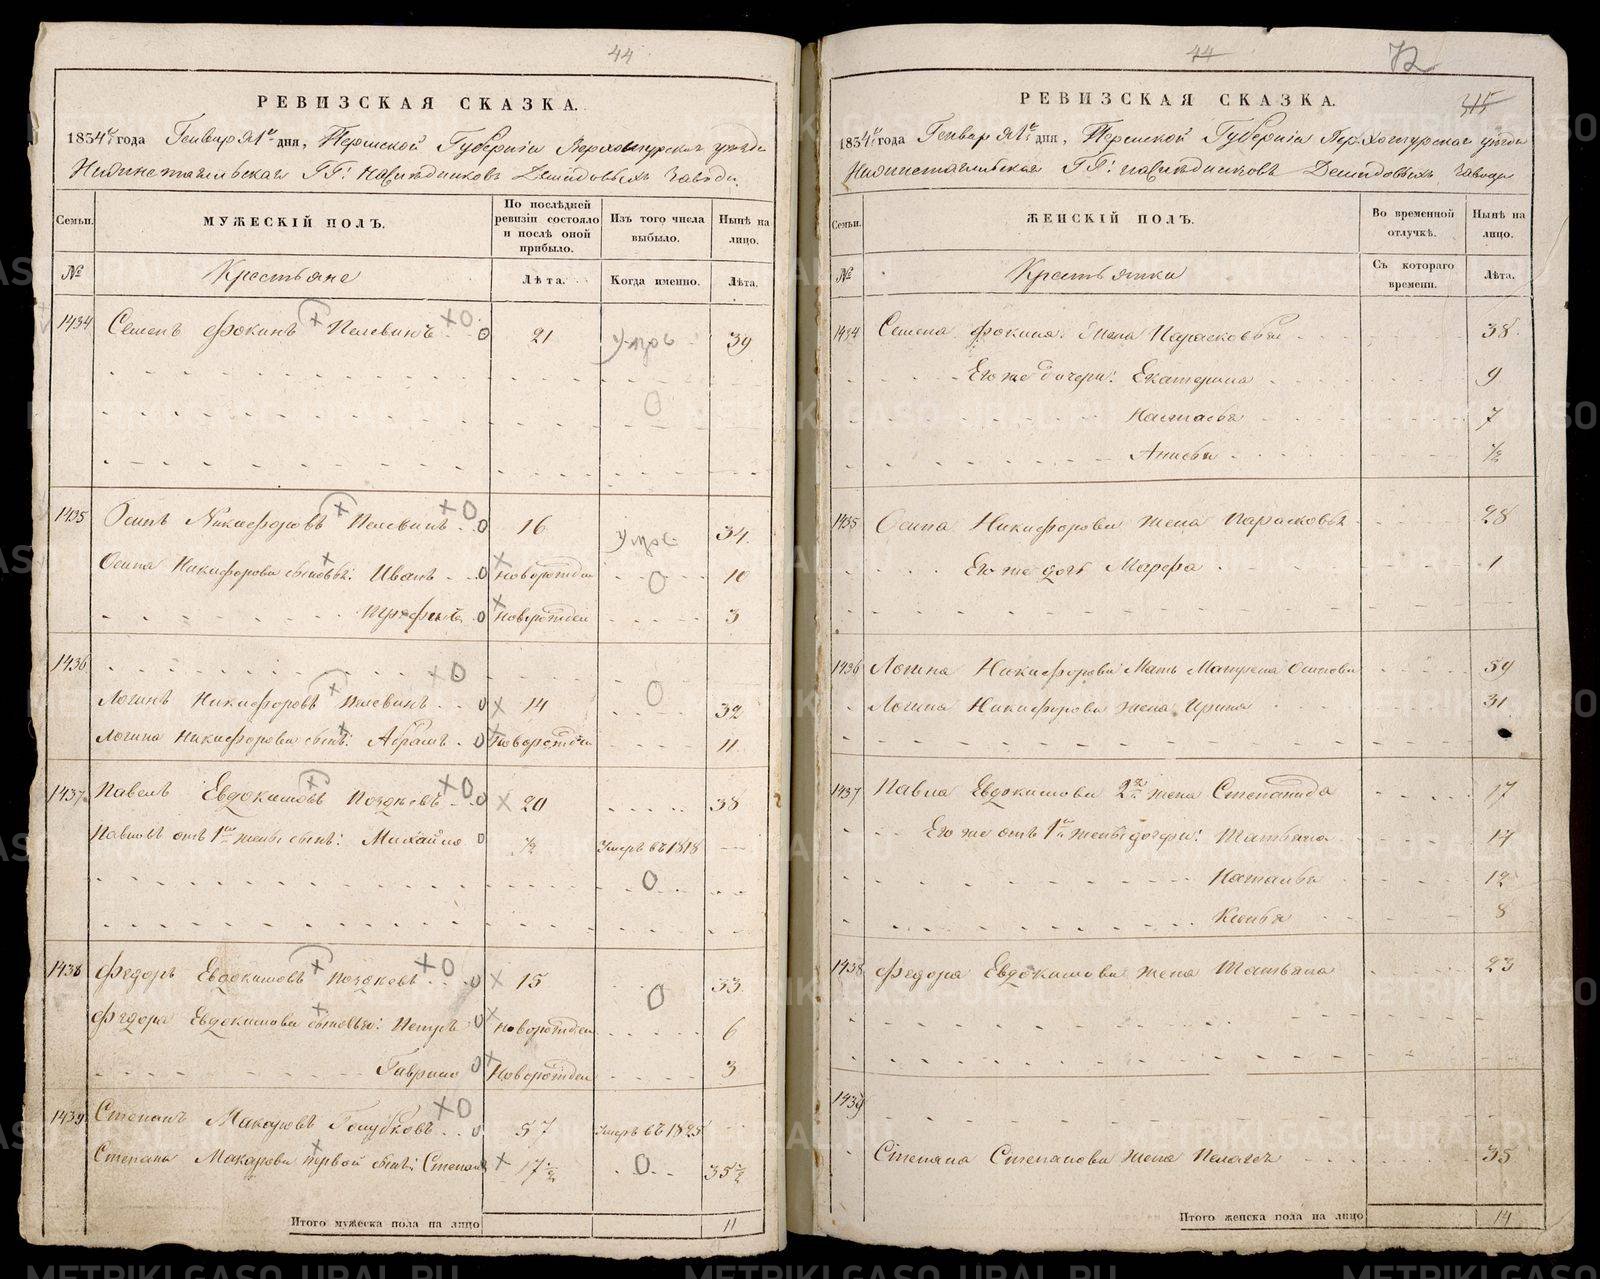 44
РЕВИЗСКАЯ СКАЗКА.
1834го года Генваря 1го дня, Пермской Губернии Верхотурскаго уезда
Нижнетагильскаго ГГ: наследниковъ Демидовыхъ завода
Семьи.
МУЖЕСКІЙ ПОЛЪ.
По послѣдней ревизіи состояло и послѣ оной прибыло.
Изъ того числа выбыло.
Нынѣ на лицо.
№
Крестьяне
Лѣта.
Когда именно.
Лѣта.
1434 Семенъ Фокинъ Пелевинъ 21 умре 39
1435 Осипъ Никифоровъ Пелевинъ 16 умре 34
Осипа Никифорова сыновья: Иванъ новорожден 10
Трофимъ новорожден 3
1436
Логинъ Никифоровъ Пелевинъ 14 32
Логина Никифорова сынъ: Абрамъ новорожден 11
1437 Павелъ Евдокимовъ Поздѣевъ 20 38
Павловъ отъ 1й жены сынъ: Михайло 1/2 Умеръ въ 1818
1438 Федоръ Евдокимовъ 15 33
Федора Евдокимова сыновья: Петръ новорожден 6
Гаврило Новорожден 3
1439 Степанъ Макаровъ Голубковъ 57 Умеръ въ 1825
Степана Макарова первой сынъ: Степанъ 17 1/2 35 1/2
Итого мужеска пола на лицо 11
44
72
315
РЕВИЗСКАЯ СКАЗКА.
1834го года Генваря 1го дня, Пермской Губернии Верхотурскаго уезда
Нижнетагильскаго ГГ: наследниковъ Демидовыхъ завода
Семьи.
ЖЕНСКІЙ ПОЛЪ.
Во временной отлучкѣ.
Нынѣ на лицо.
№
Крестьянки
Съ котораго времени.
Лѣта.
1434 Семена Фокина жена Парасковья 38
Его же дочери: Екатерина 9
Настасья 7
Анисья 1/2
1435 Осипа Никифорова жена Парасковья 28
Его же дочь Марфа 1
1436 Логина Никифорова Мать Матрена Осипова 59
Логина Никифорова жена Ирина 31
1437 Павла Евдокимова 2я жена Степанида 17
Его же отъ 1й жены дочери: Татьяна 17
Наталья 12
8
1438 Федора Евдокимова жена Татьяна 23
1439
Степана Степанова жена Пелагея 35
Итого женска пола на лицо 14
METRIKI.GASO-URAL.RU